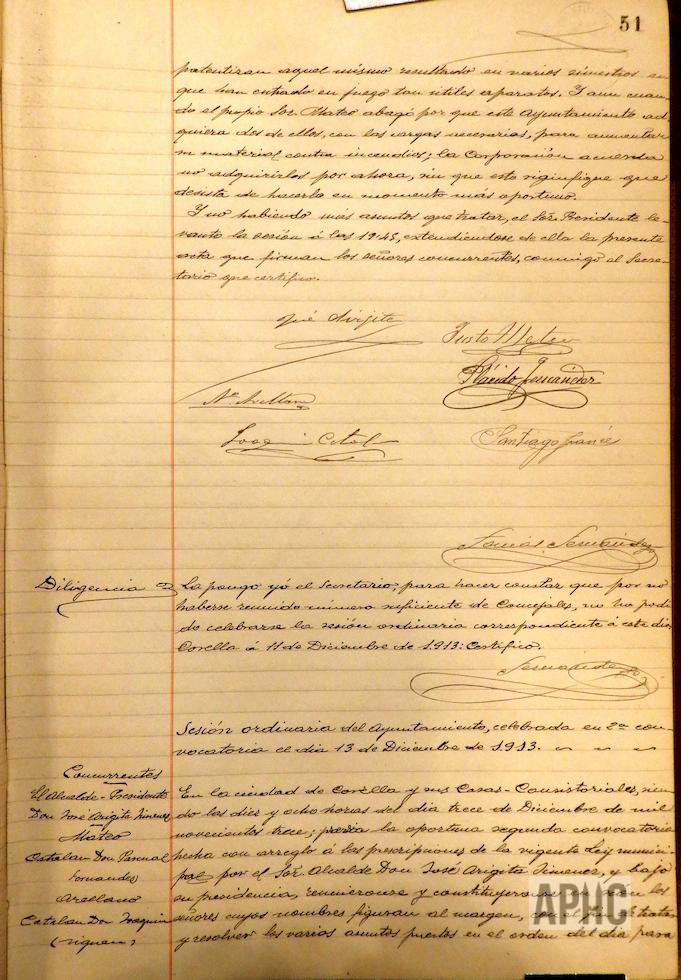 51
patentizan aquel mismo resultado en varios siniestros en
que han entrado en juego tan útiles aparatos. Y aun cuan-
do el propio Sor. Mateo abogó por que este Ayuntamiento ad-
quiera dos de ellos, con las cargas necesarias, para aumentar
su material contra incendios; la Corporación acuerda
no adquirirlos por ahora, sin que esto signifique que
desista de hacerlo en momento más oportuno.
Y no habiendo más asuntos que tratar, el Sor. Presidente le-
vantó la sesión á las 19'45, extendiéndose de ella la presente
acta que firman los señores concurrentes, conmigo el Secre-
tario que certifico.
José Arigita
Justo Mateo
Plácido Fernández
N. Arellano
Joaquín Catal
Santiago Francés
Tomás Fernández
Diligencia
La pongo yó el Secretario, para hacer constar que por no
haberse reunido número suficiente de Concejales, no ha podi-
do celebrarse la sesión ordinaria correspondiente á este día.
Corella á 11 de Diciembre de 1.913: Certifico.
Fernández
Sesión ordinaria del Ayuntamiento, celebrada en 2ª con-
vocatoria el día 13 de Diciembre de 1.913.
Concurrentes
El Alcalde-Presidente
Don José Arigita Jimenez
Mateo
Catalan Don Pascual
Fernandez
Arellano
Catalan Don Joaquin
(siguen)
En la ciudad de Corella y sus Casas-Consistoriales, sien-
do las diez y ocho horas del día trece de Diciembre de mil
novecientos trece; previa la oportuna segunda convocatoria
hecha con arreglo á las prescripciones de la vigente Ley munici-
pal por el Sor. Alcalde Don José Arigita Jimenez, y bajo
su presidencia, reunieronse y constituyeron los
señores cuyos nombres figuran al margen, con el fin de tratar
y resolver los varios asuntos puestos en el orden del día para
APHC